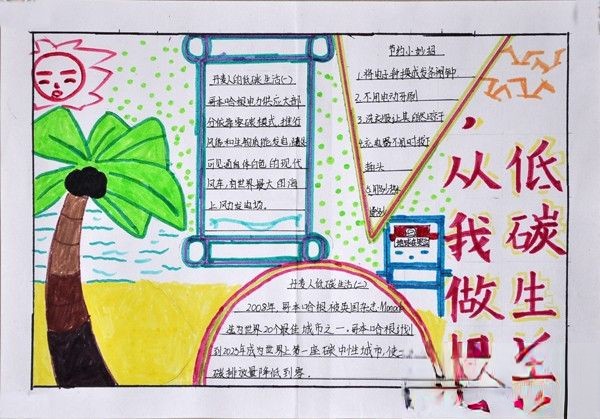 丹麦人的低碳生活(一)
哥本哈根电力供应大部
分依靠零碳模式,推行
风能和生物质能发电,随处
可见通体白色的现代
风车,有世界最大的海
上风力发电场。
节约小妙招
1.将电子钟换成发条闹钟
2.不用电动牙刷
3.洗衣服让其自然晾干
4.电器不用时拔下
插头
丹麦人低碳生活(二)
2008年,哥本哈根被英国杂志Mono
选为世界20个最佳城市之一.哥本哈根计划
到2025年成为世界上第一座碳中性城市,使二
碳排放量降低到零.
低碳生
,从我做